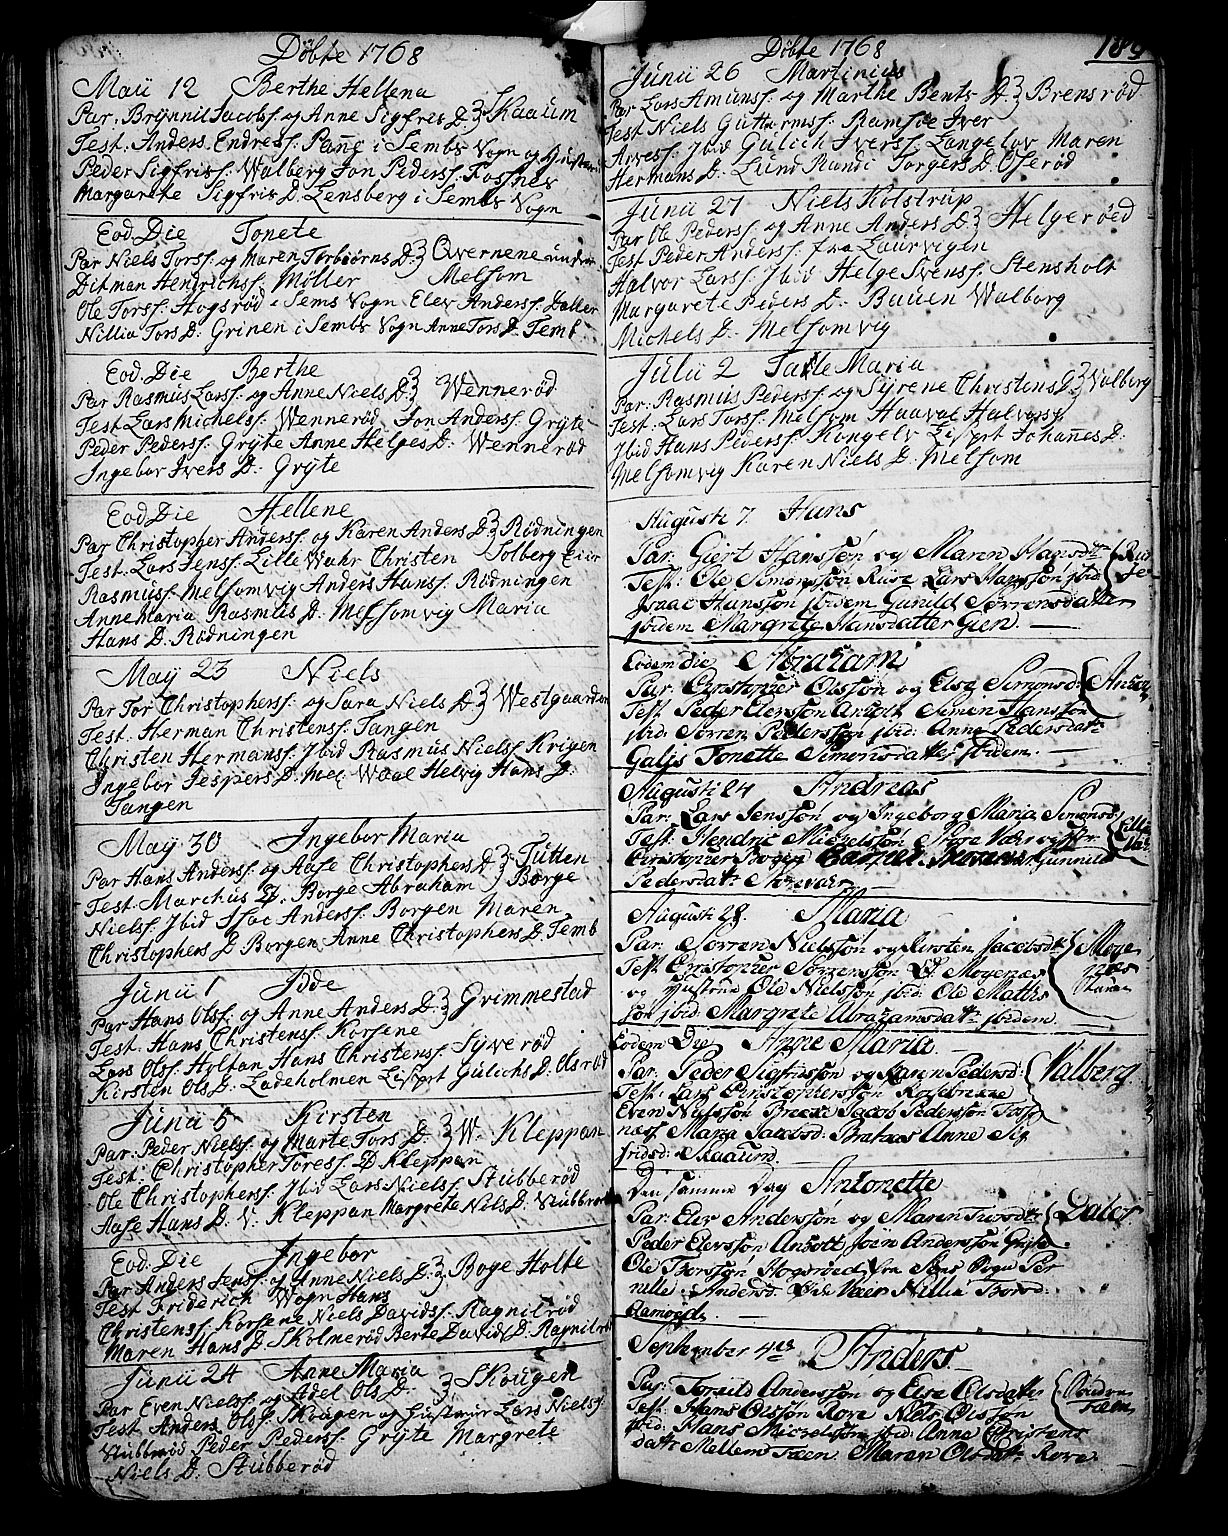 Döbte 1768
Maii 12 Berthe Hellena
Par. Brynnil Jacobs: og Anne Sigfris D. Skaaum
Test. Anders Endress: Pañe i Sembs Sogn og Hustrue
Peder Sigfriss: Walberg Jon Pederss: Fossnes
Margarete Sigfris D. Lensberg i Sembs Sogn
Eod. Die Tonete
Par Niels Torss: og Maren Torbiørns D. Qvernene under
Ditman Hendrichss Möller Melsom
Ole Torss: Hogsrød i Sems Sogn Elev Anderss: Daller
Nillia Tors D: Grinen i Sembs Sogn Anne Tors D. Temb
Eod. Die Berthe
Par Rasmus Larss: og Anne Niels D. Wennerød
Test Lars Michelss: Wennerød Jon Anderss: Gryte
Peder Pederss: Gryte Anne Helges D: Wennerød
Ingebor Ivers D: Gryte
Eod Die Hellene
Par Christopher Anderss: og Karen Anders D. Rödningen
Test. Lars Jenss: Lille Wahr Christen Solberg Eier
Rasmuss: Melsomvig Anders Hanss: Rödningen
Anne Maria Rasmus D: Melsomvig Maria
Hans D. Rödningen
May 23 Niels
Par Tor Christopherss: og Sara Niels D. Westgaarden
Test: Herman Christenss: Tangen
Christen Hermanss: Jbid Rasmus Nielss: Krigen
Ingebor Jespers D. Mel: Waal Helvig Hans D:
Tangen
May 30 Ingebor Maria
Par Hans Anderss: og Aase Christophers D. Tutten
Test. Marchus Borge Abraham Borge
Nielss: Jbid Isac Anderss: Borgen Maren
Christophers D Borgen Anne Christophers D. Temb
Junii 1 Idde
Par Hans Olss: og Anne Anders D. Grimmestad
Test. Hans Christenss: Korsene
Lars Olss: Holtan Hans Christenss: Syverød
Kirsten Ols D. Ladeholmen Lisprt Gulichs D: Olsrød
Junii 5 Kirsten
Par: Peder Nielss: og Marte Tors D. W. Kleppan
Test: Christopher Toress: Kleppan
Ole Christopherss: Jbid Lars Nielss: Stubberød
Aase Hans D. V: Kleppan Margrete Niels D. Stubberød
Eod: Die Ingebor
Par Anders Jenss: og Anne Niels D. Boge Holte
Test Friderick Wogn Hans
Christenss: Korsene Niels Davidss: Ragnilrød
Maren Hans D. Skolmerød Berte Davids D: Ragnilrød
Junii 24 Anne Maria
Par Even Nielss: og Adel Ols D. Skougen
Test Anders Olss: Skougen og Hustrue Lars Nielss:
Stubberød Peder Pederss: Gryte Margrete
Niels D. Stubberød
Döbte 1768
Junii 26 Martinius
Par Lars Amunss: og Marthe Bents D. Brensrød
Test Niels Guttormss: Ramsøe Iver
Arvess: Jbid Gulich Iverss: Langelov Maren
Hermans D: Lund Randi Torgers D: Oserød
Junii 27 Niels Kolstrup
Par Ole Pederss: og Anne Anders D. Helgerøed
Test Peder Anderss: fra Laurvigen
Halvor Larss: Jbid Helge Svenss: Stensholt
Margarete Peders D. Bauen Walborg
Michels D. Melsomvig
Julii 2 Tarle Maria
Par: Rasmus Pederss: og Syrene Christens D. Walberg
Test. Lars Torss: Melsom Haaval Halvorss:
Jbid Hans Pederss: Kongelv Lisprt Johañes D:
Melsomvig Karen Niels D. Melsom
Augusti 7. Hans
Par: Giert Hanssøn og Maren Hansd:
Test: Ole Simonssøn Riise Lars Hanssøn jbid
Isaac Hanssøn jbidem Gunild Sørrensdatter
jbidem Margrete Hansdatter Gien.
Eodem Die Abraham
Par: Christopher Olssøn og Else Simonsd:
Test Peder Elevssøn Ansott Simen Hanssøn
jbid: Sørren Pederssøn jbid: Anne Pedersdat:
Tonette Simonsdatter jbidem.
Augusti 24 Andreas
Par: Lars Jenssøn og Ingeborg Maria Simonsd:
Test: Hendric Michelssøn
Christopher Gunnild
Pedersdat:
Augusti 28. Maria
Par: Sørren Nielssøn og Kirsten Jacobsd:
Test: Christopher Sørrenssøn Mogenæs
og Hustrue Ole Nielssøn jbid: Ole Mathis
søn jbid: Margrete Abrahamsdat: jbidem.
Eodem Die Anne Maria
Par: Peder Sigfrissøn og Karen Pedersd: Valberg
Test: Lars Christophersson
Even Nielssøn Jacob Pederssøn Foss
næss Maria Jacobsd: Anne Sig
fridsd: Skaaum
Den samme Dag Antonette
Par: Elev Anderssøn og Maren Thorsd: Daler
Peder Elevssøn Ansott Joen Anderssøn Gryte
Ole Thorssøn Hogsrøed fra Sems Sogn Per
nille Andersd: Nillia Thorsd:
Ramrøed.
September 4de Anders
Par: Torkild Anderssøn og Else Olsdatter
Test: Hans Olssøn Rove Niels Olssøn
jbid: Hans Michelssøn jbid: Anne Christens
dat: Mellem Føen Maren Olsdat: Rove